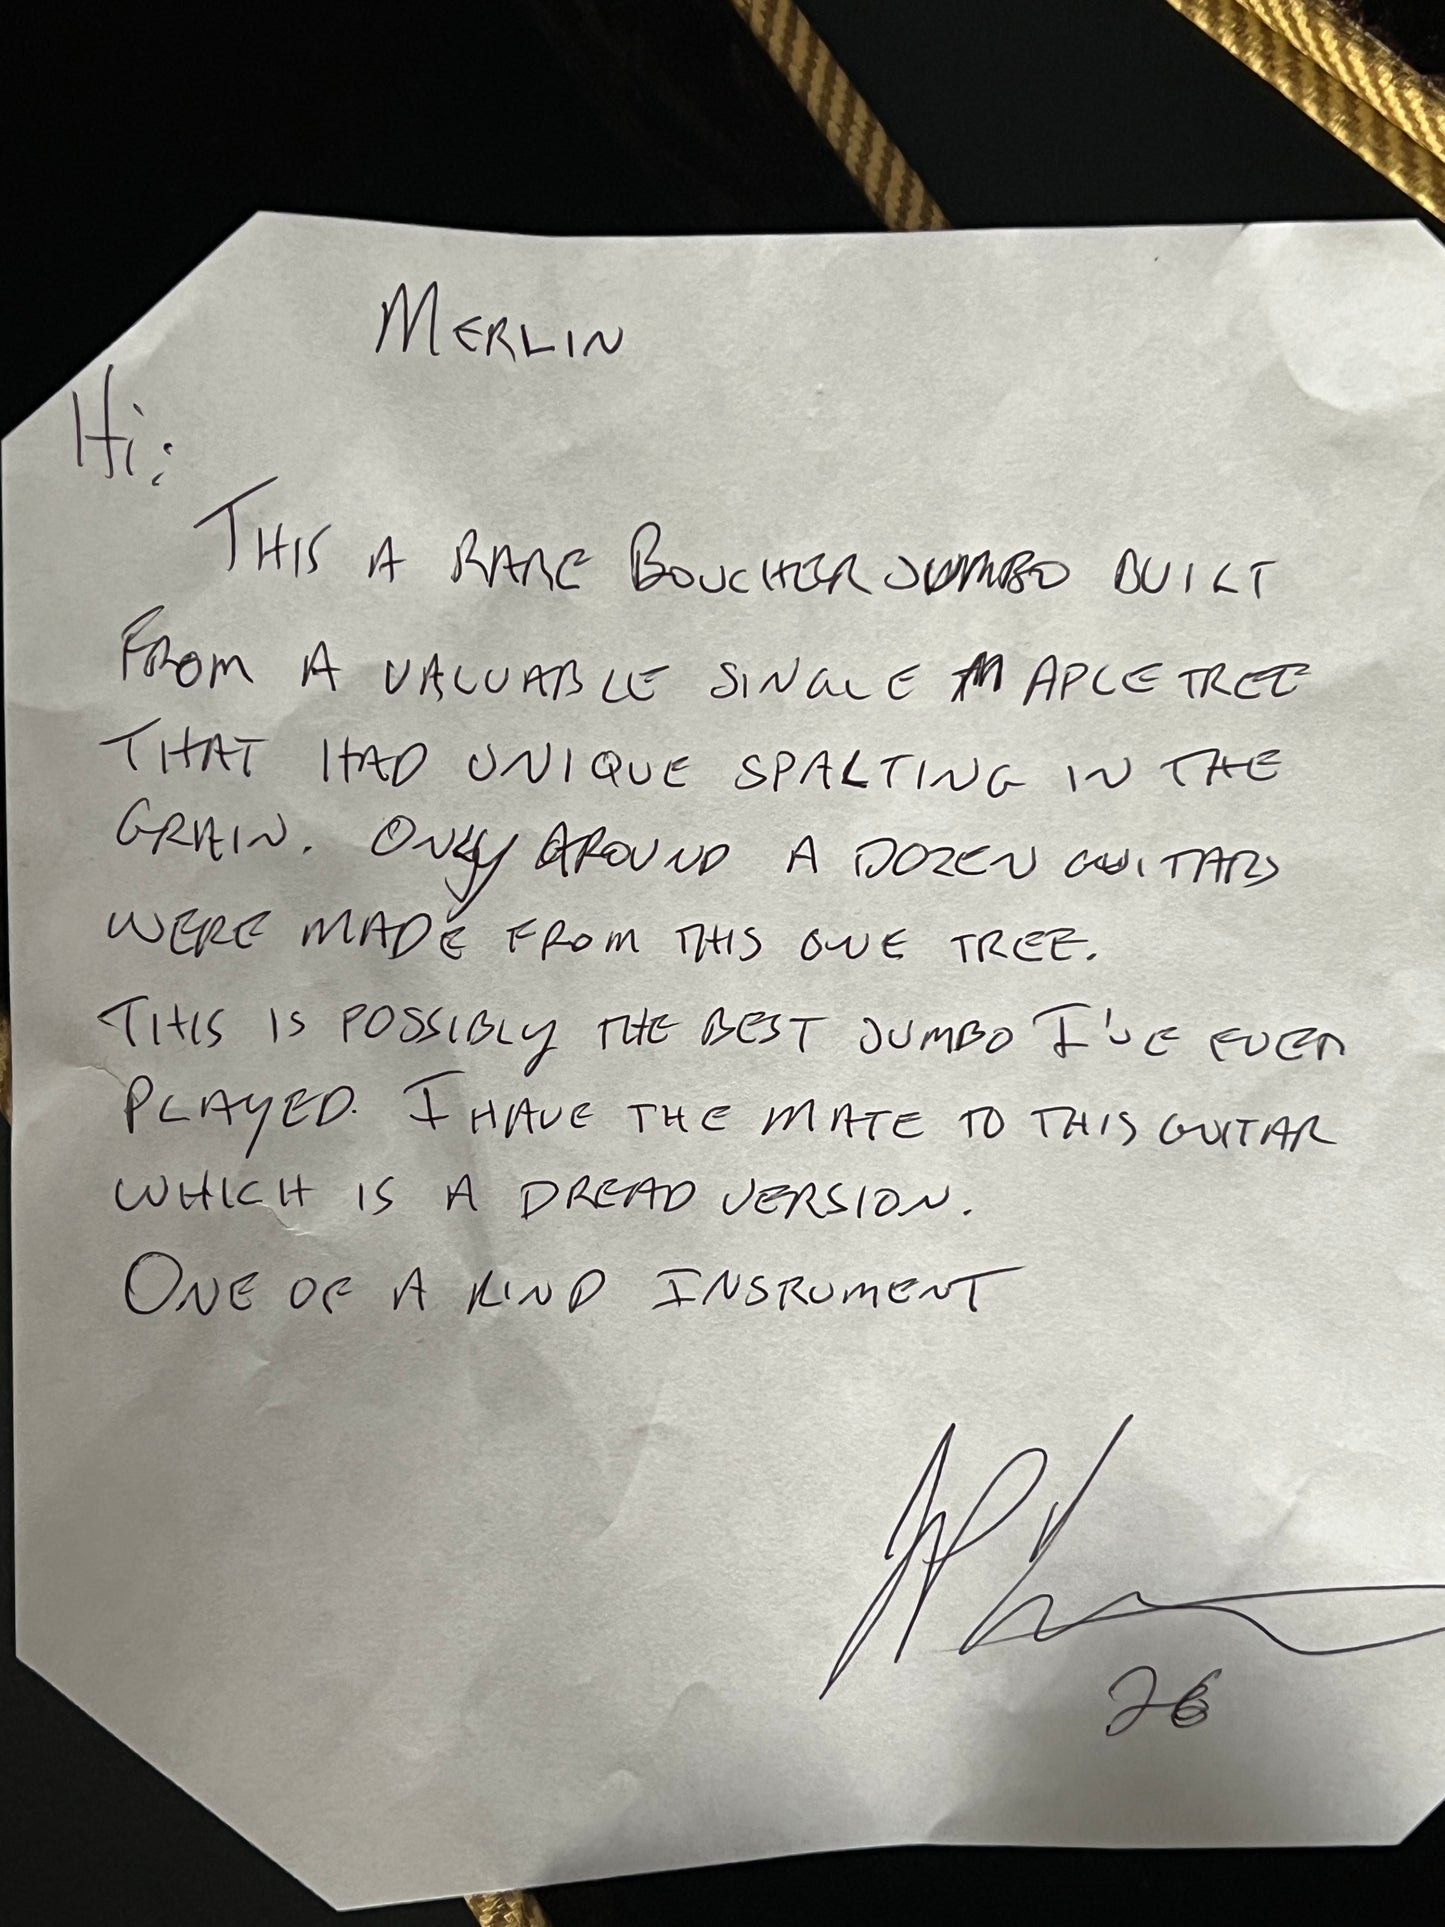 MERLIN
Hi:
THIS A RARE BOUCHER JUMBO BUILT
FROM A VALUABLE SINGLE MAPLE TREE
THAT HAD UNIQUE SPALTING IN THE
GRAIN. ONLY AROUND A DOZEN GUITARS
WERE MADE FROM THIS ONE TREE.
THIS IS POSSIBLY THE BEST JUMBO I'VE EVER
PLAYED. I HAVE THE MATE TO THIS GUITAR
WHICH IS A DREAD VERSION.
ONE OF A KIND INSRUMENT
26